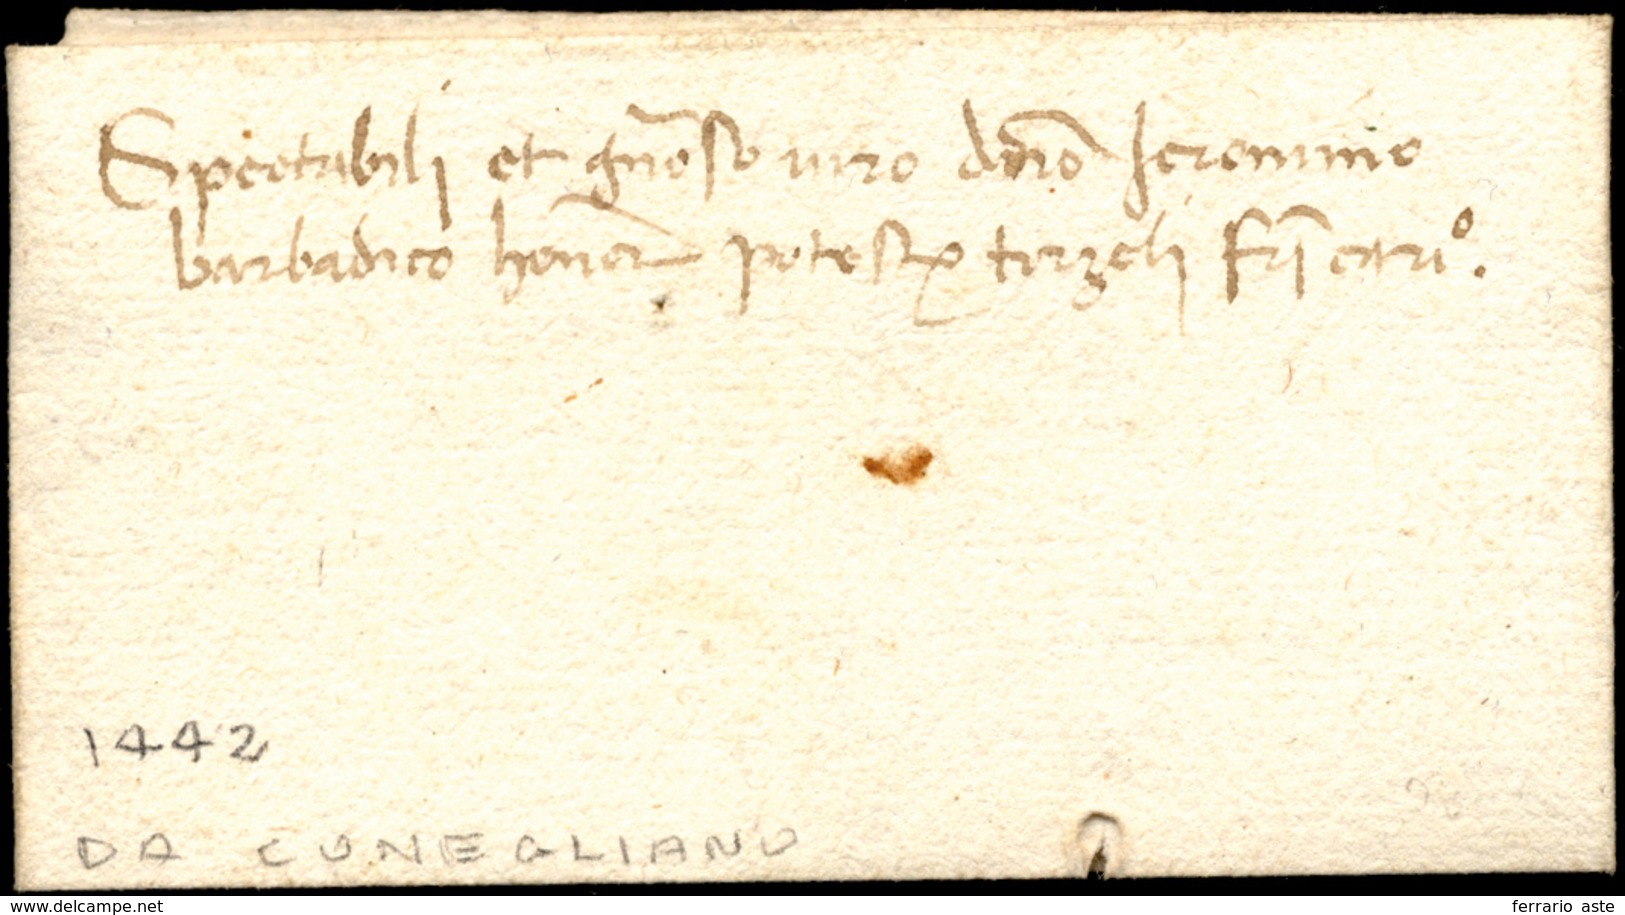 Spectabili et gn̄oso viro dn̄o Jeronimo
barbadico honor potestati torzeli
1442
DA CONEGLIANO
www.delcampe.net
ferrario aste